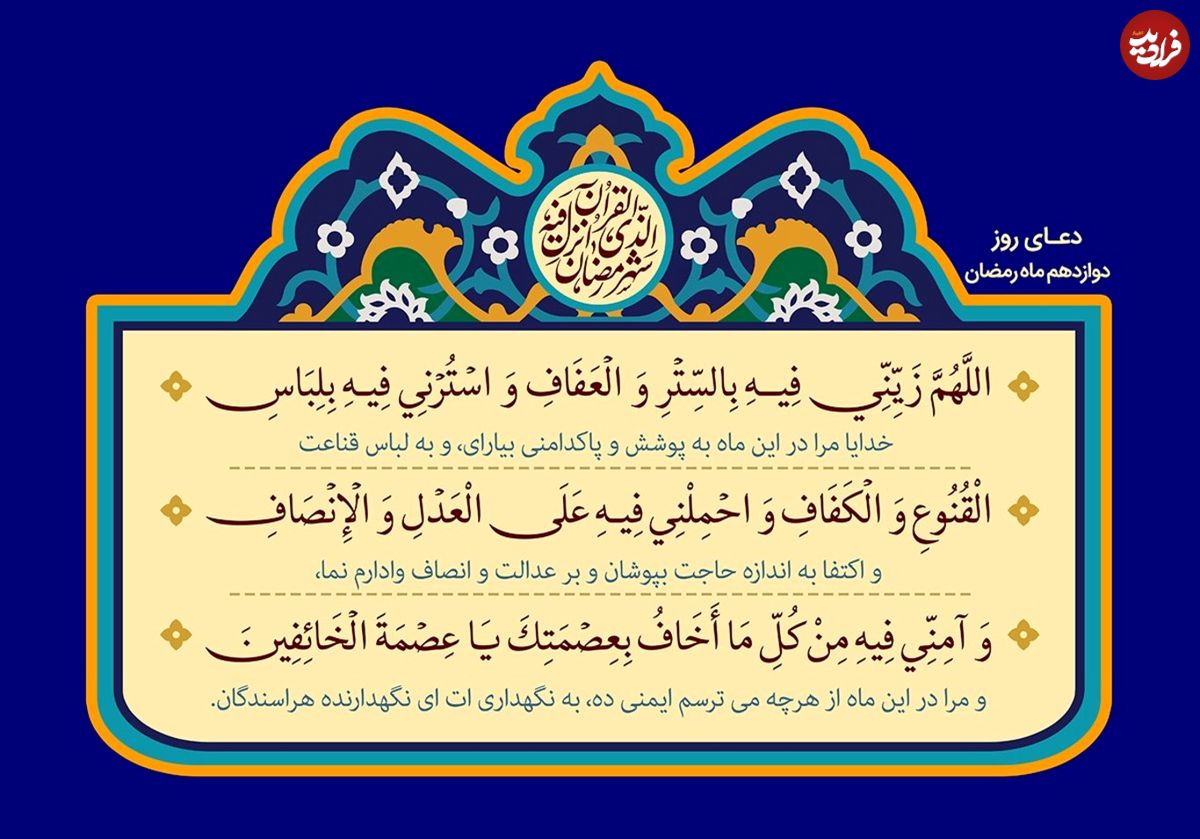 فرادید
شهر رمضان
الذی انزل فیه
القرآن
دعـای روز
دوازدهم ماه رمضان
اللَّهُمَّ زَيِّنِّي فِيهِ بِالسِّتْرِ وَ الْعَفَافِ وَ اسْتُرْنِي فِيهِ بِلِبَاسِ
خدایا مرا در این ماه به پوشش و پاکدامنی بیارای، و به لباس قناعت
الْقُنُوعِ وَ الْكَفَافِ وَ احْمِلْنِي فِيهِ عَلَى الْعَدْلِ وَ الْإِنْصَافِ
و اکتفا به اندازه حاجت بپوشان و بر عدالت و انصاف وادارم نما،
وَ آمِنِّي فِيهِ مِنْ كُلِّ مَا أَخَافُ بِعِصْمَتِكَ يَا عِصْمَةَ الْخَائِفِينَ
و مرا در این ماه از هرچه می ترسم ایمنی ده، به نگهداری ات ای نگهدارنده هراسندگان.